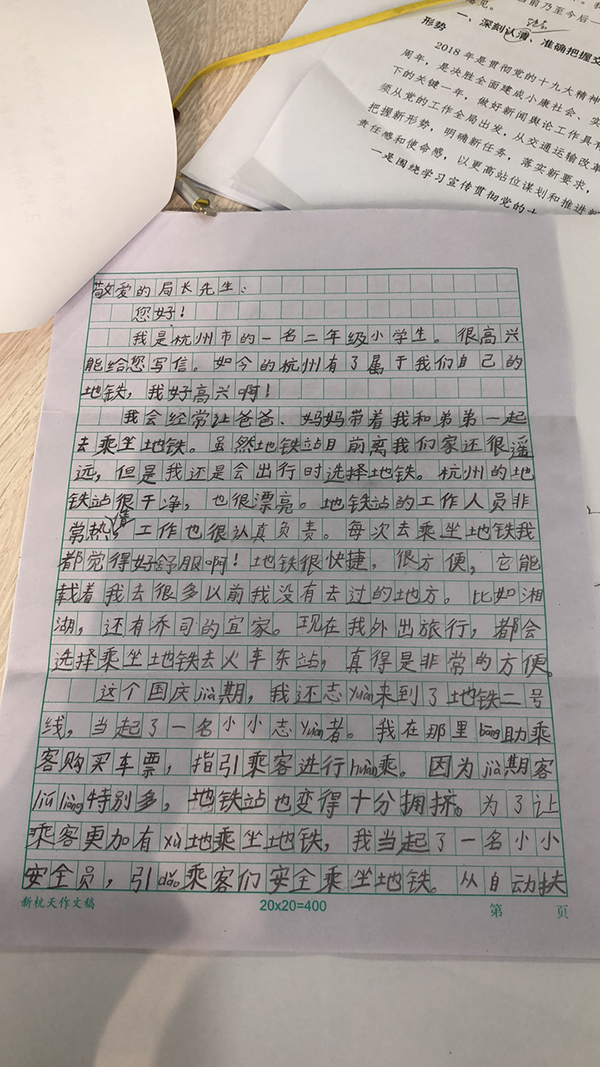 意见。
当前乃至今后一
形势
一、深刻认清、准确把握交
2018年是贯彻党的十九大精神
周年，是决胜全面建成小康社会、实
下的关键一年，做好新闻舆论工作具有
须从党的工作全局出发，从交通运输改革
把握新形势，明确新任务，落实新要求，
责任感和使命感，以更高站位谋划和推进新
一是围绕学习宣传贯彻党的十
敬爱的局长先生：
您好！
我是杭州市的一名二年级小学生。很高兴
能给您写信。如今的杭州有了属于我们自己的
地铁，我好高兴啊！
我会经常让爸爸、妈妈带着我和弟弟一起
去乘坐地铁。虽然地铁站目前离我们家还很遥
远，但是我还是会出行时选择地铁。杭州的地
铁站很干净，也很漂亮。地铁站的工作人员非
常热情，工作也很认真负责。每次去乘坐地铁我
都觉得好舒服啊！地铁很快捷，很方便，它能
载着我去很多以前我没有去过的地方。比如湘
湖，还有乔司的宜家。现在我外出旅行，都会
选择乘坐地铁去火车东站，真得是非常的方便。
这个国庆jià期，我还志yuàn来到了地铁二号
线，当起了一名小小志yuàn者。我在那里bāng助乘
客购买车票，指引乘客进行huàn乘。因为jià期客
liú liàng特别多，地铁站也变得十分拥挤。为了让
乘客更加有xù地乘坐地铁，我当起了一名小小
安全员，引dǎo乘客们安全乘坐地铁。从自动扶
新杭天作文稿
20x20=400
第 页